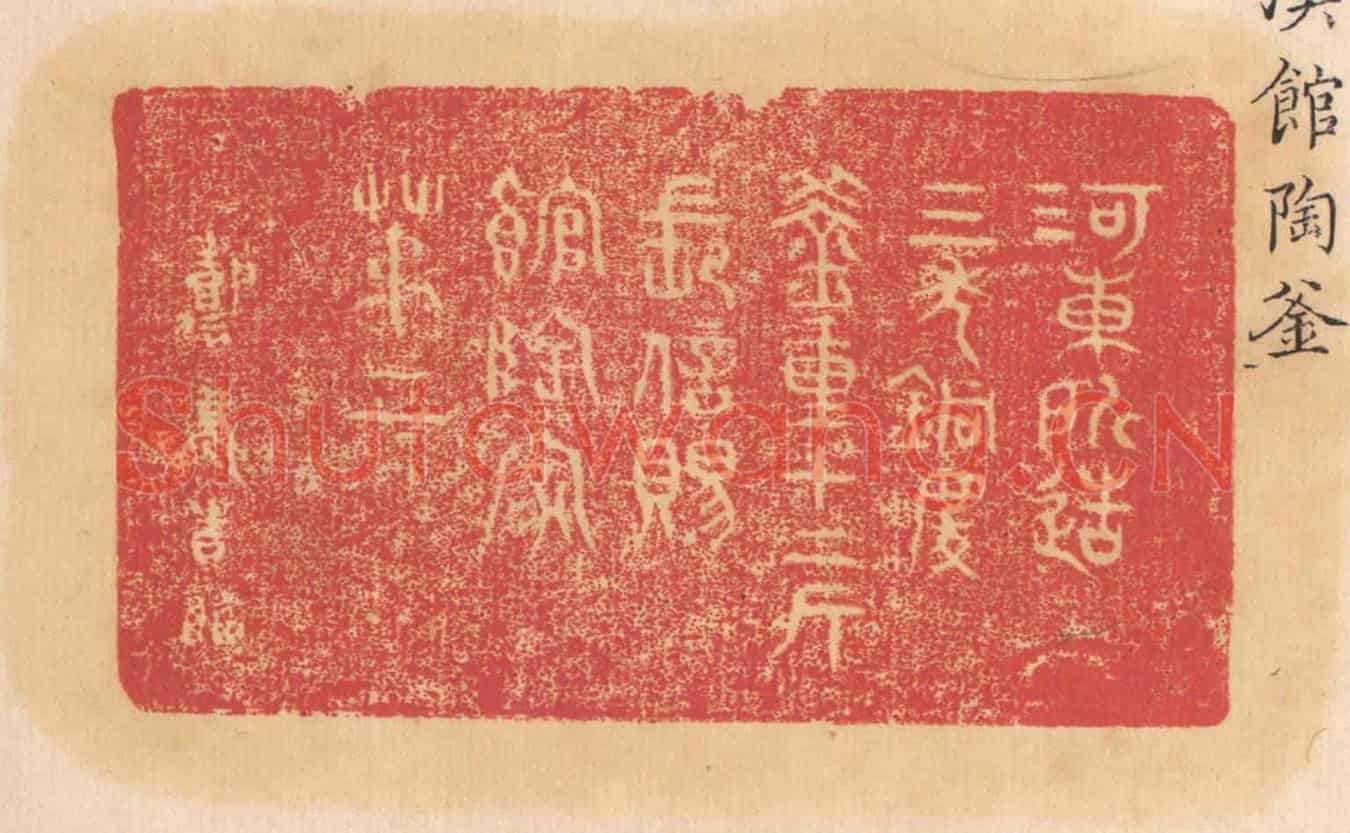 漢館陶釜
河東所造
三斗銅慶
釜重十二斤
長信賜
館陶家
第二
Shutawang.CN